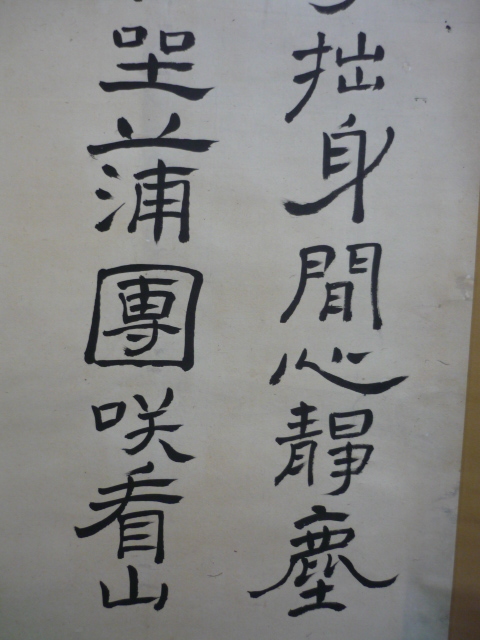 拙身間心靜塵
坐蒲團咲看山